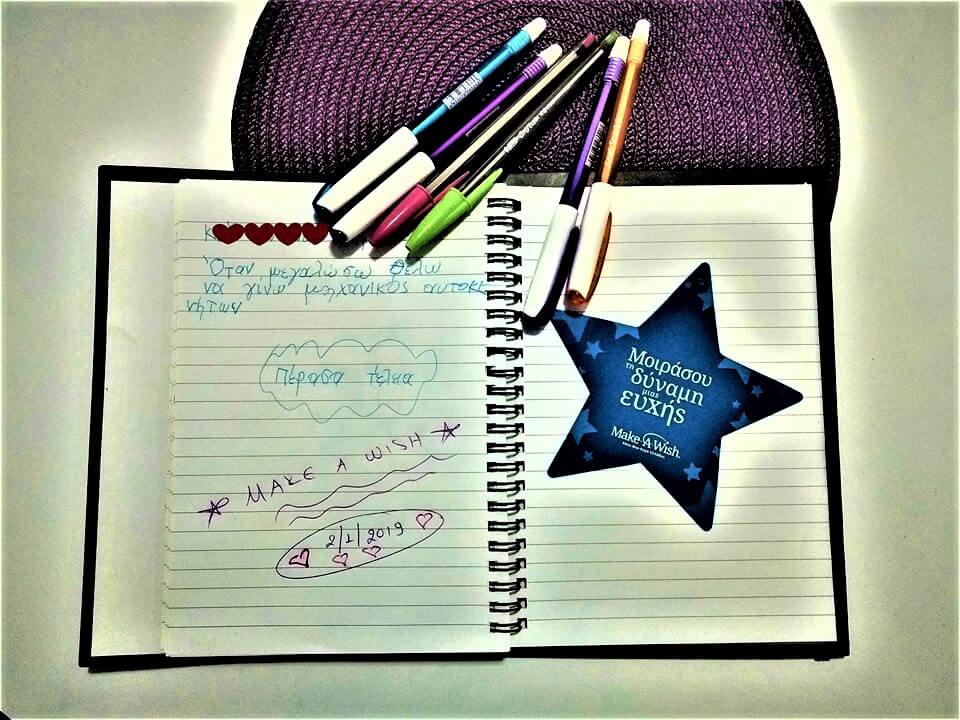 Όταν μεγαλώσω θέλω
να γίνω μηχανικός αυτοκι
νήτων
Πέρασα τέλεια
MAKE A WISH
2/1/2019
Μοιράσου
τη
δύναμη
μιας
ευχής
Make-A-Wish.